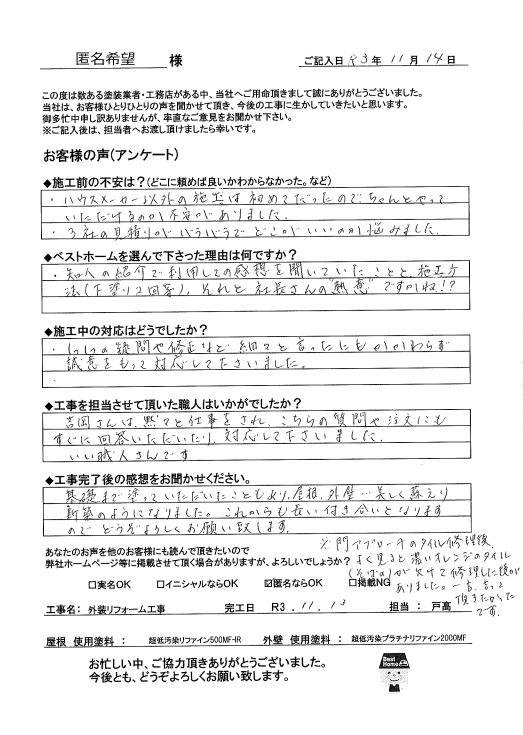 匿名希望 様
ご記入日 R3年 11月 14日
この度は数ある塗装業者・工務店がある中、当社へご用命頂きまして誠にありがとうございました。
当社は、お客様ひとりひとりの声を聞かせて頂き、今後の工事に生かしていきたいと思います。
御多忙中申し訳ありませんが、率直なご意見をお聞かせ下さい。
※ご記入後は、担当者へお渡し頂けましたら幸いです。
お客様の声(アンケート)
◆施工前の不安は?(どこに頼めば良いかわからなかった。など)
・ハウスメーカー以外の施工は初めてだったので、ちゃんとやって
いただけるのか不安がありました。
・3社の見積りがバラバラでどこがいいのか悩みました。
◆ベストホームを選んで下さった理由は何ですか?
・知人の紹介で利用しての感想を聞いていたことと、施工方
法(下塗り2回等)、それと社長さんの"熱意"ですかね!?
◆施工中の対応はどうでしたか?
・1つ1つの疑問や修正など細々と言ったにもかかわらず
誠意をもって対応して下さいました。
◆工事を担当させて頂いた職人はいかがでしたか?
吉岡さんは、黙々と仕事をされ、こちらの質問や注文にも
すぐに回答いただいたり、対応して下さいました。
いい職人さんです
◆工事完了後の感想をお聞かせください。
基礎まで塗っていただいたこともあり、屋根、外壁…美しく蘇えり
新築のようになりました。これからも長い付き合いとなります
のでどうぞよろしくお願い致します。
※門アプローチのタイル修理後、
よく見ると濃いオレンジのタイル
(そばの)が欠けて修理した後が
ありました。一言、言って
頂きたかった
です。
あなたのお声を他のお客様にも読んで頂きたいので
弊社ホームページ等に掲載させて頂く場合がありますが、よろしいでしょうか?
□実名OK □イニシャルならOK ☑匿名ならOK □掲載NG
工事名: 外装リフォーム工事 完工日 R3.11.13 担当: 戸高
屋根 使用塗料: 超低汚染リファイン500MF-IR 外壁 使用塗料: 超低汚染プラチナリファイン2000MF
お忙しい中、ご協力頂きありがとうございました。
今後とも、どうぞよろしくお願い致します。
Best
Home